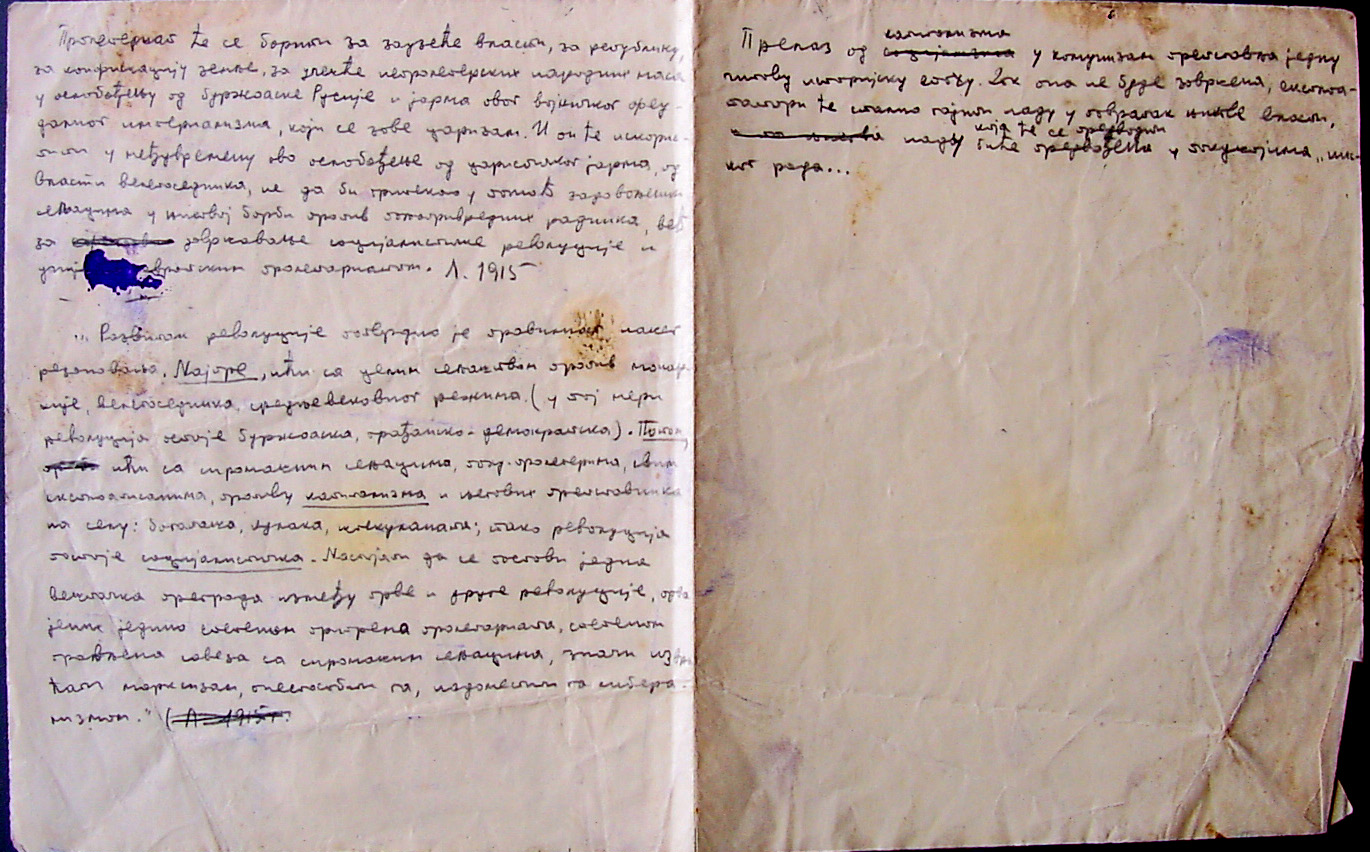 Пролетеријат ће се борити за заузеће власти, за републику,
за конфискацију земље, за учешће непролетерских народних маса
у ослобођењу од буржоаске Русије и јарма овог војничког феу-
далног империјализма, који се зове царизам. И он ће искорис-
тити у међувремену ово ослобођење од царистичког јарма, од
власти велепоседника, не да би притекао у помоћ
сељацима у њиховој борби против пољопривредних радника, већ
за довршавање социјалистичке револуције и
пролетаријатом. Л. 1915
"Развитак револуције потврдио је правилност нашег
резоновања. Најпре, ићи са целим сељаштвом против монар-
хије, велепоседника, средњевековног режима (у тој мери
револуција остаје буржоаска, грађанско-демократска). Потом,
ићи са сиромашним сељацима, полу-пролетерима, свим
експлоатисанима, против капитализма и његових претставника
на селу: богаташа, кулака, шпекуланата; тако револуција
постаје социјалистичка. Настојати да се постави једна
вештачка преграда између прве и друге револуције, одво-
јених једино степеном припрема пролетаријата, степеном
савеза са сиромашним сељацима, значи извр-
тати марксизам, га, надоместити га либера-
лизмом." (Л. 1915 г.
Прелаз од социјализма капитализма у комунизам претставља једну
читаву историјску епоху. Док она не буде завршена, експлоа-
татори ће стално гајити наду у повратак њихове власти,
наду која ће се претводити биће у покушајима,